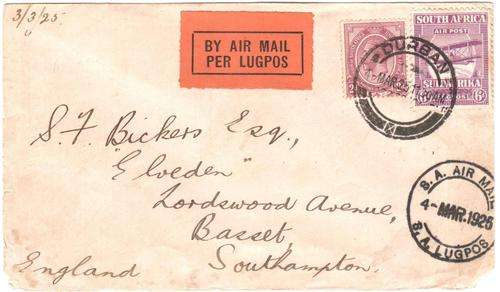 3/3/25.
"
BY AIR MAIL
PER LUGPOS
SOUTH AFRICA
AIR POST
DURBAN
MAR.25 11
S.F. Bickers Esq.,
"Elveden"
Lordswood Avenue,
Basset,
Southampton.
England
S.A. AIR MAIL
4-MAR.1925
S.A. LUGPOS